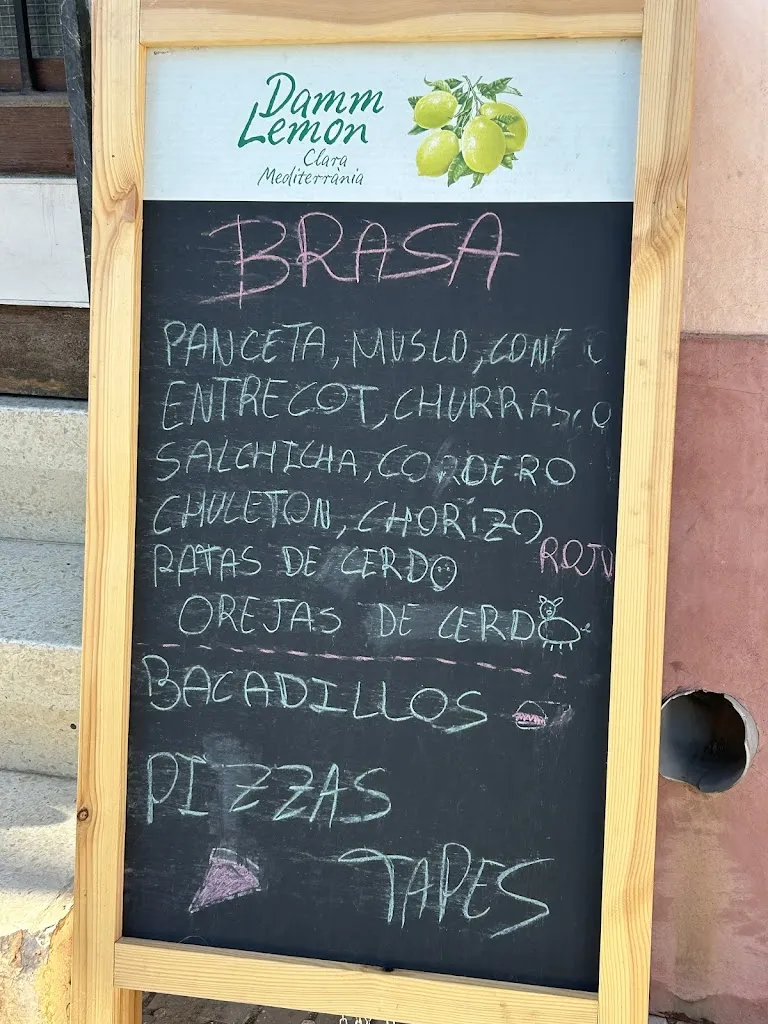 Damm
Lemon
Clara
Mediterrània
BRASA
PANCETA, MUSLO,
ENTRECOT, CHURRASCO
SALCHICHA, CORDERO
CHULETON, CHORIZO
ROJO
PATAS DE CERDO
OREJAS DE CERDO
BACADILLOS
PIZZAS
TAPES